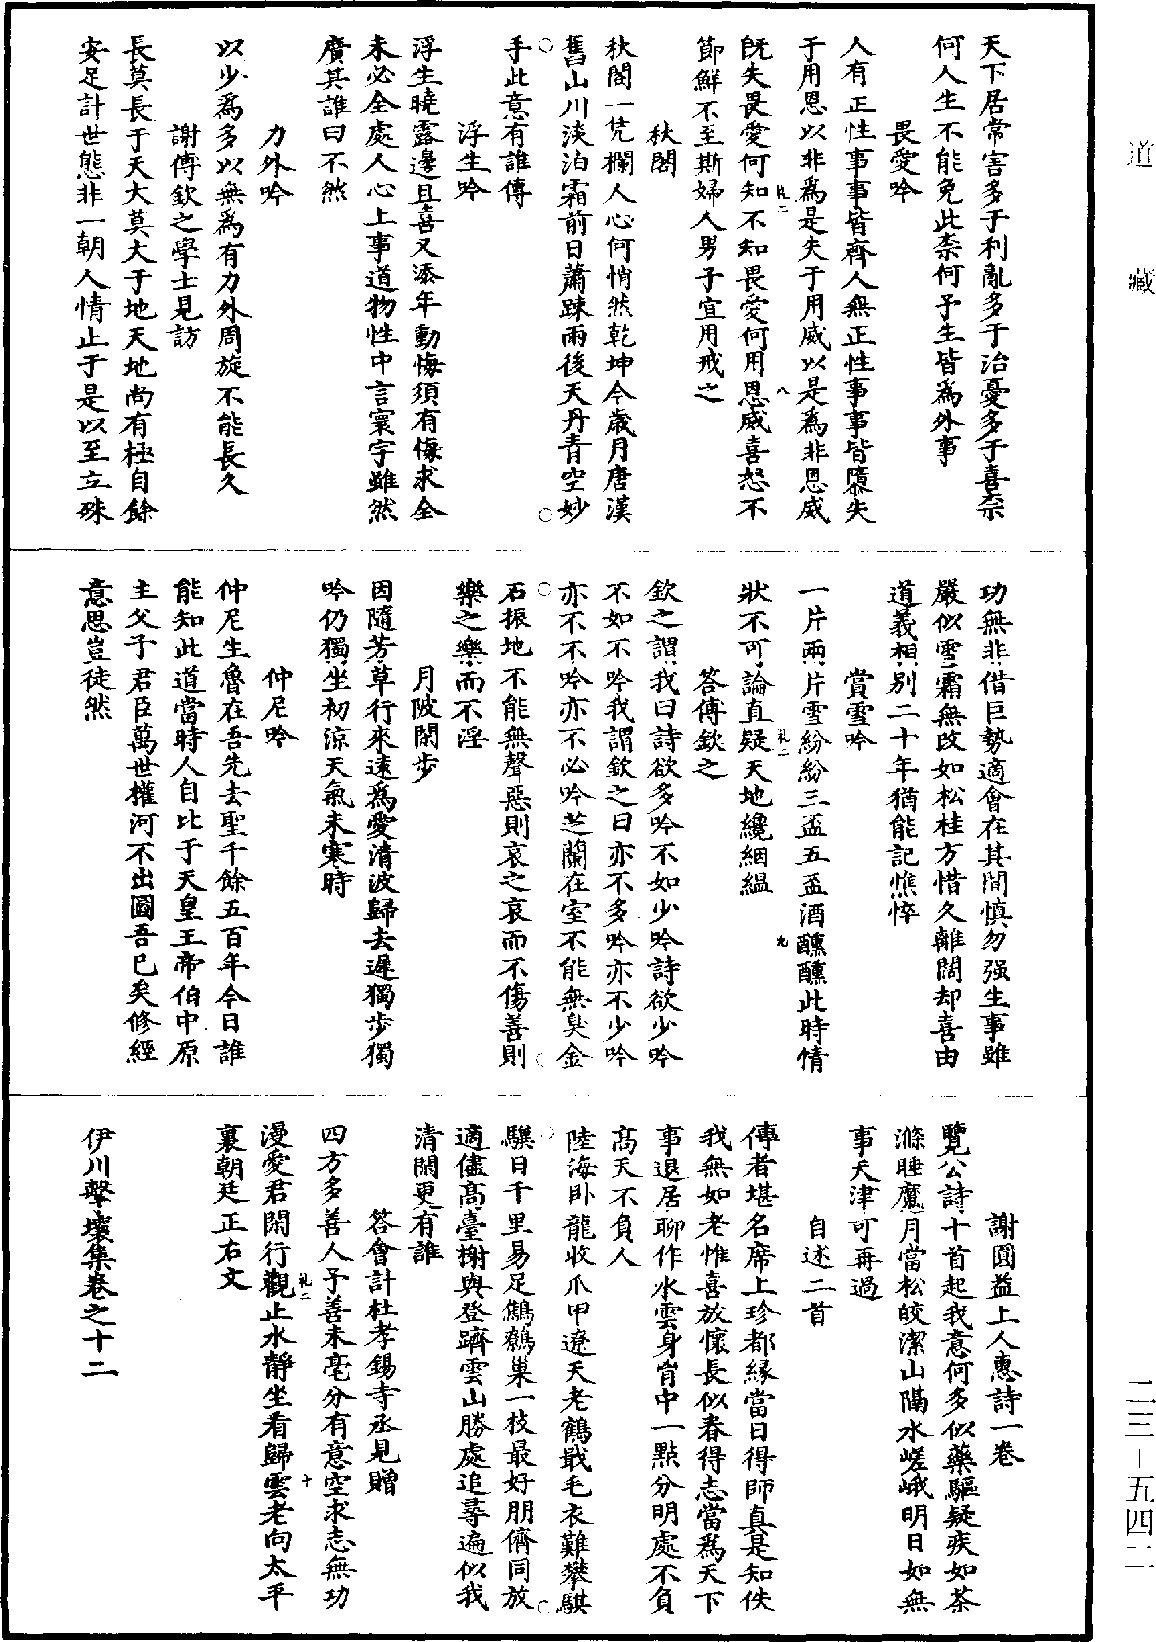 天下居常害多于利亂多于治憂多于喜柰
何人生不能免此柰何予生皆爲外事
畏愛吟
人有正性事事皆齊人無正性事事皆隳失
于用恩以非爲是失于用威以是爲非恩威
旣失畏愛何知不知畏愛何用恩威喜怒不
節鮮不至斯婦人男子宜用戒之
秋閣
秋閣一凭欄人心何悄然乾坤今歲月唐漢
舊山川淡泊霜前日蕭踈雨後天丹青空妙
手此意有誰傳
浮生吟
浮生曉露邊且喜又添年動悔須有悔求全
未必全處人心上事道物性中言寰宇雖然
廣其誰曰不然
力外吟
以少爲多以無爲有力外周旋不能長久
謝傅欽之學士見訪
長莫長于天大莫大于地天地尚有極自餘
安足計世態非一朝人情止于是以至立殊
功無非借巨勢適會在其間慎勿强生事雖
嚴似雪霜無改如松桂方惜久離闊却喜由
道義相別二十年猶能記憔悴
賞雪吟
一片兩片雪紛紛三盃五盃酒醺醺此時情
狀不可論直疑天地纔絪緼
答傅欽之
欽之謂我曰詩欲多吟不如少吟詩欲少吟
不如不吟我謂欽之曰亦不多吟亦不少吟
亦不不吟亦不必吟芝蘭在室不能無臭金
石振地不能無聲惡則哀之哀而不傷善則
樂之樂而不淫
月陂閑步
因隨芳草行來遠爲愛清波歸去遲獨步獨
吟仍獨坐初涼天氣未寒時
仲尼吟
仲尼生魯在吾先去聖千餘五百年今日誰
能知此道當時人自比于天皇王帝伯中原
主父子君臣萬世權河不出圖吾已矣修經
意思豈徒然
謝圓益上人惠詩一卷
覽公詩十首起我意何多似藥驅疑疾如茶
滌睡魔月當松皎潔山隔水嵯峨明日如無
事天津可再過
自述二首
傳者堪名席上珍都緣當日得師真是知佚
我無如老惟喜放懷長似春得志當爲天下
事退居聊作水雲身胷中一點分明處不負
高天不負人
陸海卧龍收爪甲遼天老鶴戢毛衣難攀騏
驥日千里易足鷦鷯巢一枝最好朋儕同放
適儘高臺榭與登躋雲山勝處追尋遍似我
清閑更有誰
答會計杜孝錫寺丞見贈
四方多善人予善未亳分有意空求志無功
漫愛君閑行觀止水靜坐看歸雲老向太平
裏朝廷正右文
伊川擊壤集卷之十二
道藏
二三－五四二